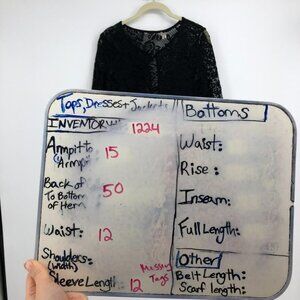 Tops, Dresses + Jackets
INVENTORY# 1224
Armpit to "Armpit" 15
Back of To Bottom of Hem 50
Waist: 12
Shoulders: (width)
Sleeve Length: 12
Missing Tags
Bottoms
Waist:
Rise:
Inseam:
Full Length:
Other
Belt Length:
Scarf length: